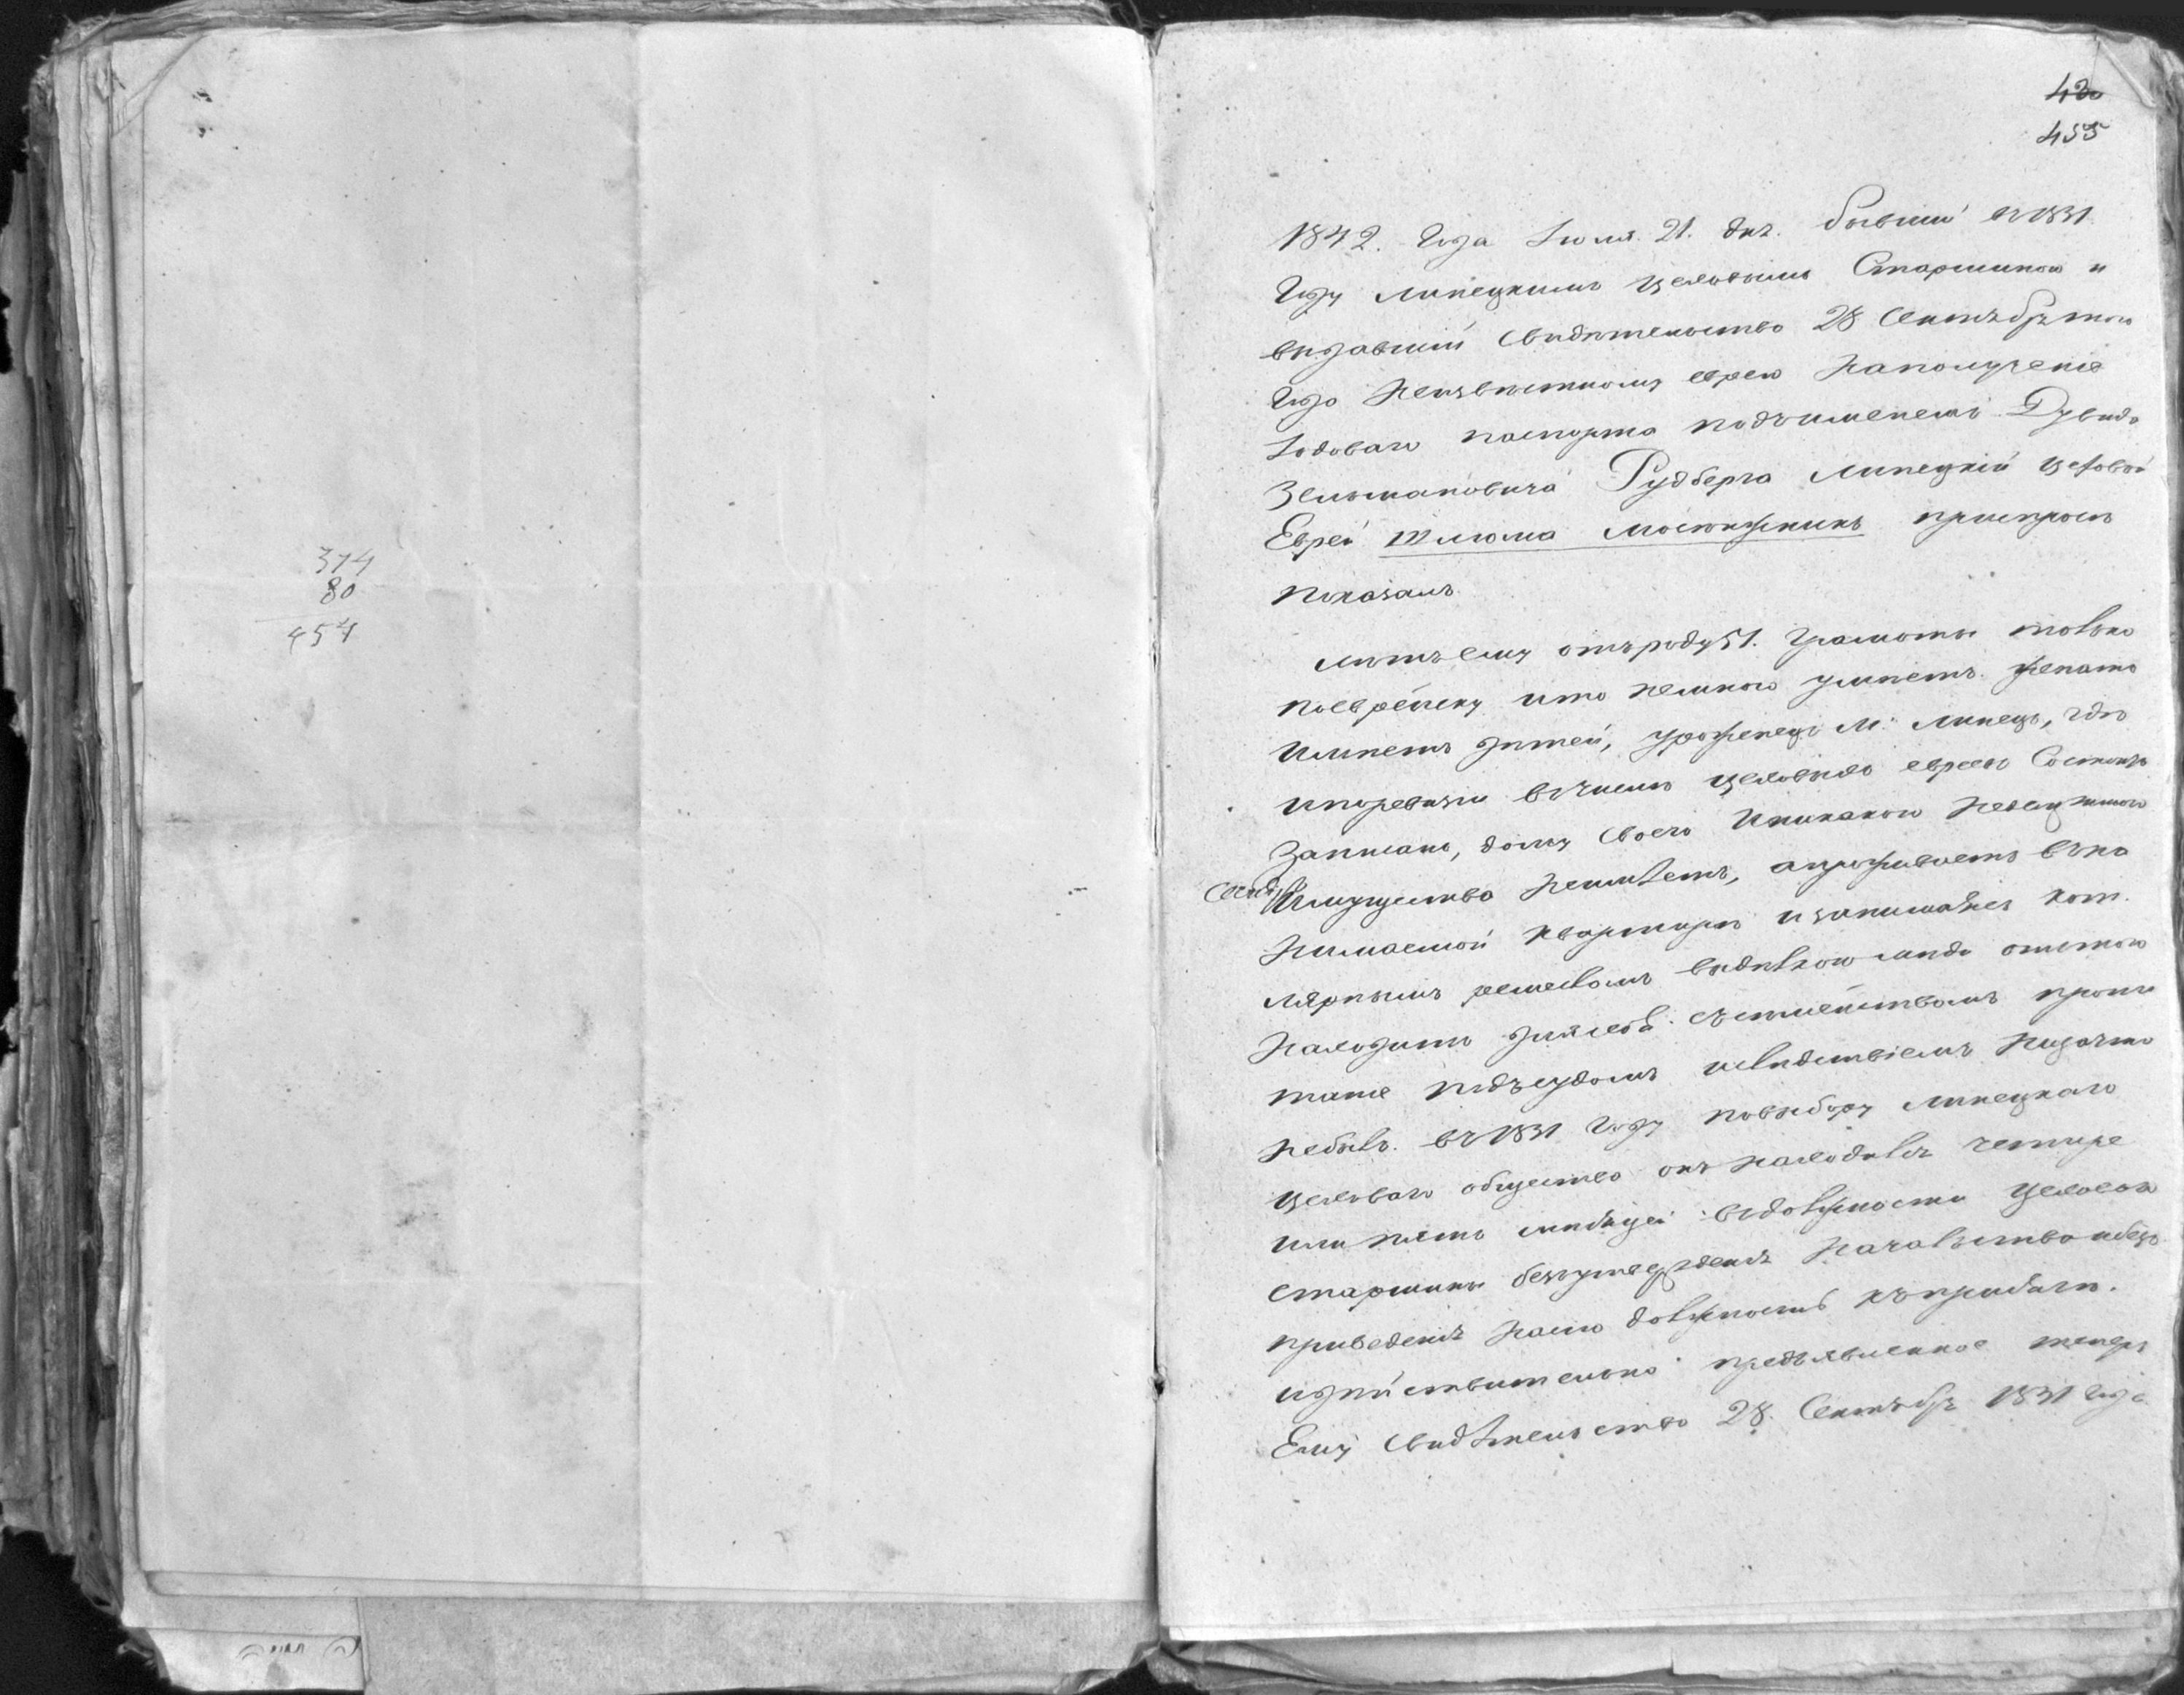 374
80
454
420
455
1842. Года Іюля. 21. дня. бывшій въ 1831
Году Липецкимъ Цеховымъ Старшиною и
видавшій Свидѣтельство 28 Сентября того
Года неизвѣстному еврею на получение
Годоваго паспорта подъ именемъ Дувида
Зельмановича Рудберга Липецкій Цеховой
Еврей Шлiома
показалъ
Лѣтъ ему отъ роду 51. Грамоты только
поеврейску и то немного умѣетъ. женатъ
Имѣетъ дѣтей, уроженецъ М. Липецъ, гдѣ
и по ревизіи въ числѣ Цеховыхъ евреевъ Состоитъ
Записанъ, дому Своего и никакого недвижимого
Имущества неимѣетъ, а проживаетъ въ на
нимаемой квартирѣ и занимается кот.
лярнымъ ремесломъ
находитъ для себя съ семействомъ пропи
таніе подъ судомъ и слѣдствіемъ ни за что
небылъ. въ 1831 Году по выбору Липецкаго
Цеховаго общества онъ находился четыре
или пять мѣсяцей въ должности Цеховаго
Старшины безъ утвержденія Начальства и безъ
приведенія на сію должность къ присягѣ.
и дѣйствительно предъявленное теперь
Ему Свидѣтельство 28. Сентября 1831 Года